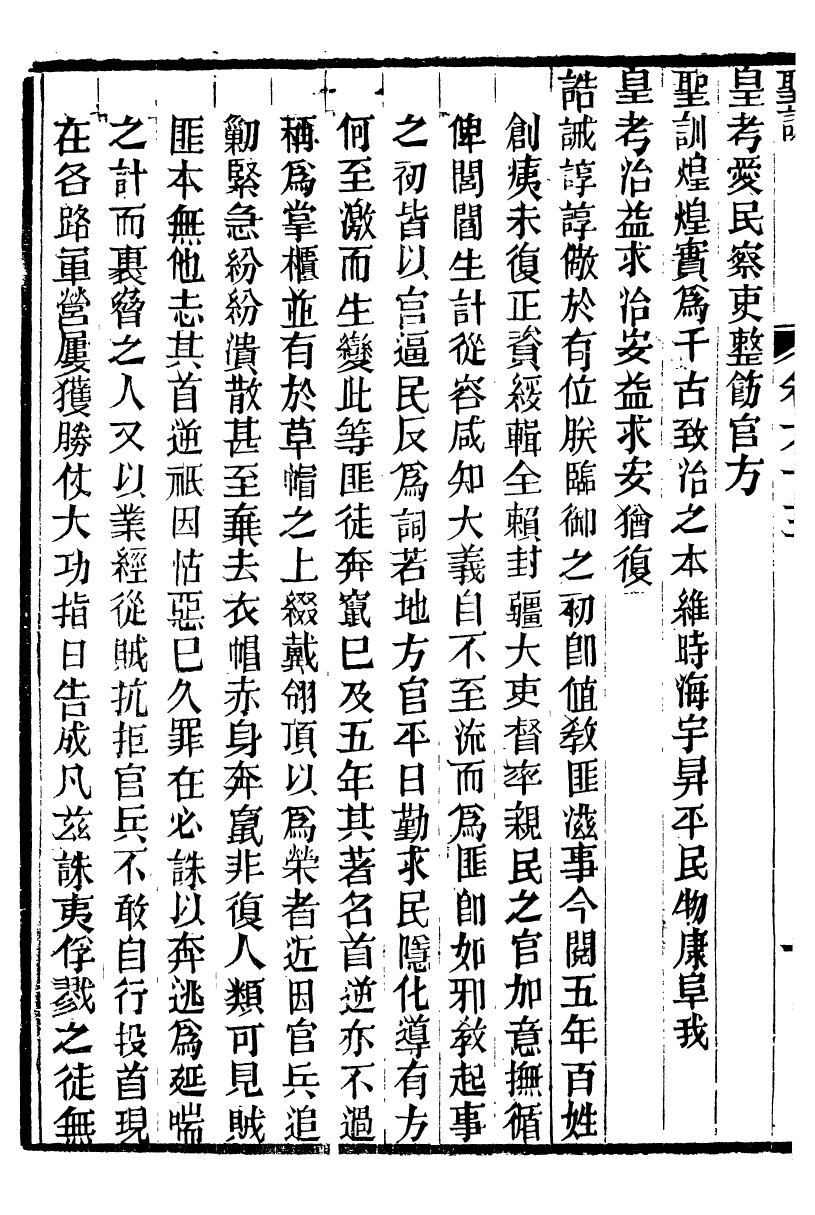 皇考愛民察吏整飭官方
聖訓煌煌實爲千古致治之本維時海宇昇平民物康阜我
皇考治益求治安益求安猶復
誥誡諄諄儆於有位朕臨御之初卽値敎匪滋事今閱五年百姓
創痍未復正資綏輯全賴封疆大吏督率親民之官加意撫循
俾閭閻生計從容咸知大義自不至流而爲匪卽如邪敎起事
之初皆以官逼民反爲詞若地方官平日勤求民隱化導有方
何至激而生變此等匪徒奔竄巳及五年其著名首逆亦不過
稱爲掌櫃並有於草帽之上綴戴翎頂以爲榮者近因官兵追
勦緊急紛紛潰散甚至棄去衣帽赤身奔竄非復人類可見賊
匪本無他志其首逆祇因怙惡巳久罪在必誅以奔逃爲延喘
之計而裹脅之人又以業經從賊抗拒官兵不敢自行投首現
在各路軍營屢獲勝仗大功指日告成凡茲誅夷俘戮之徒無